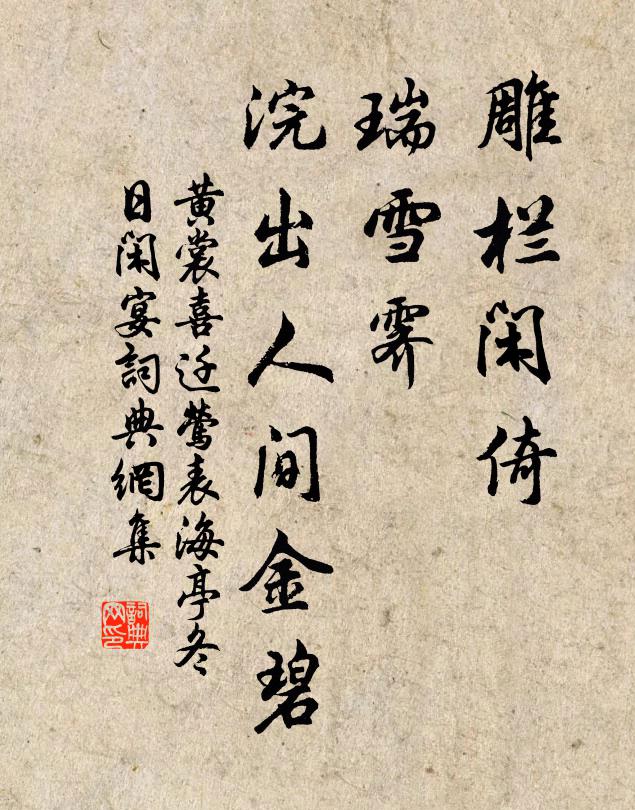 雕栏闲倚
瑞雪霁
浣出人间金碧
黄裳喜迁莺表海亭冬
日闲宴詞典網集
詞典网印